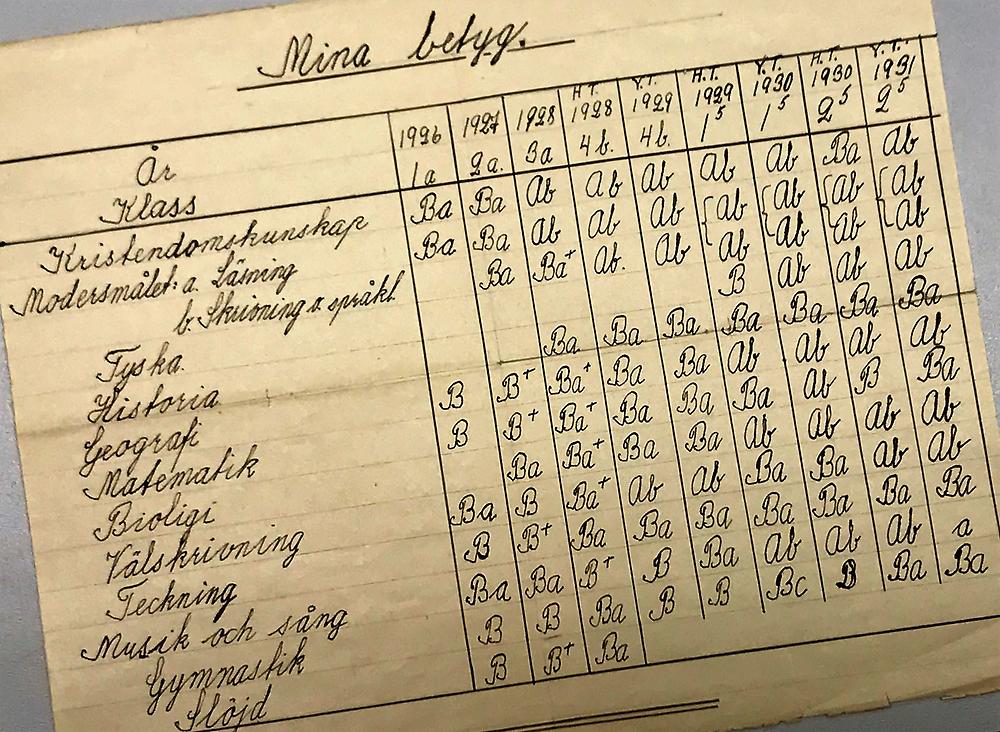 Mina betyg.
År 1926 1927 1928 H.T. 1928 V.T. 1929 H.T. 1929 V.T. 1930 H.T. 1930 V.T. 1931
Klass 1a 2a. 3a 4b. 4b. 1⁵ 1⁵ 2⁵ 2⁵
Kristendomskunskap Ba Ba Ab Ab Ab Ab Ab Ba Ab
Modersmålet: a. Läsning Ba Ba Ab Ab Ab Ab Ab Ab Ab
b. Skrivning o. språkl. Ba Ba+ Ab. Ab Ab Ab Ab Ab
Tyska. B Ab Ab Ab
Historia Ba Ba Ba Ba Ba Ba Ba
Geografi B B+ Ba+ Ba Ba Ab Ab Ab Ab
Matematik B B+ Ba+ Ba Ba Ba Ab B Ba
Bioligi Ba Ba+ Ba Ba Ab Ab Ab Ab
Välskrivning Ba B Ba+ Ab Ab Ba Ba Ab Ab
Teckning B B+ Ba Ba Ba Ba Ba Ba Ba
Musik och sång Ba Ba B+ B Ba Ab Ab Ab a
Gymnastik B B Ba B B Bc B Ba Ba
Slöjd B B+ Ba